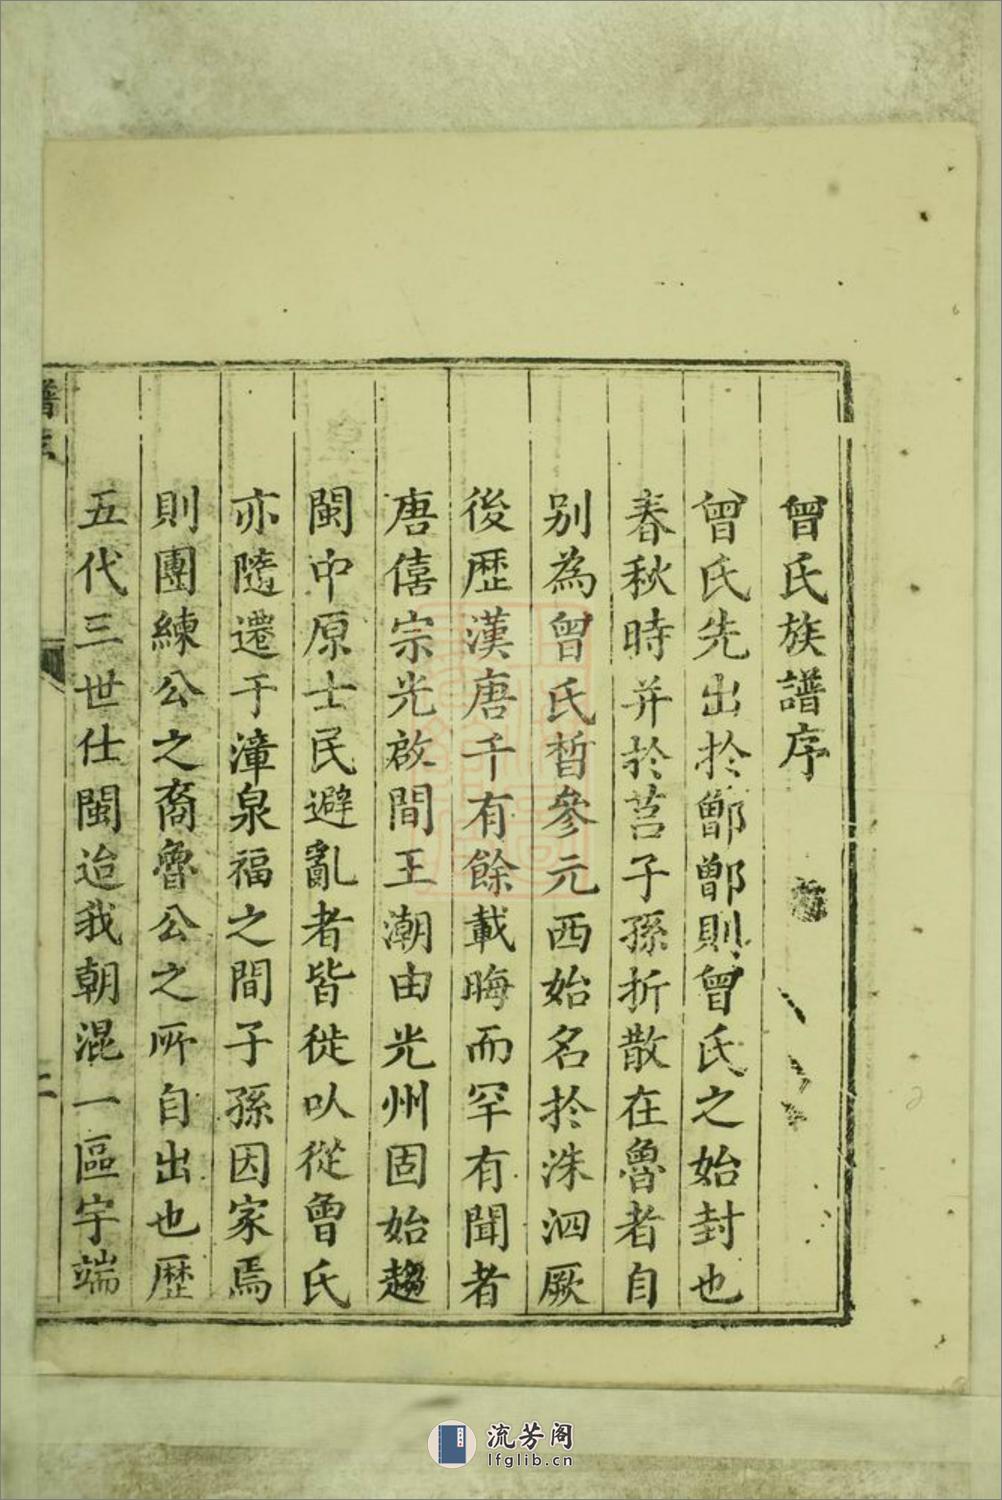 曾氏族譜序
曾氏先出於鄫鄫則曾氏之始封也
春秋時并於莒子孫折散在魯者自
别為曾氏晳參元西始名於洙泗厥
後歷漢唐千有餘載晦而罕有聞者
唐僖宗光啟間王潮由光州固始趨
閩中原士民避亂者皆徙以從曾氏
亦隨遷于漳泉福之間子孫因家焉
則團練公之裔魯公之所自出也歷
五代三世仕閩迨我朝混一區宇端
流芳阁
lfglib.cn